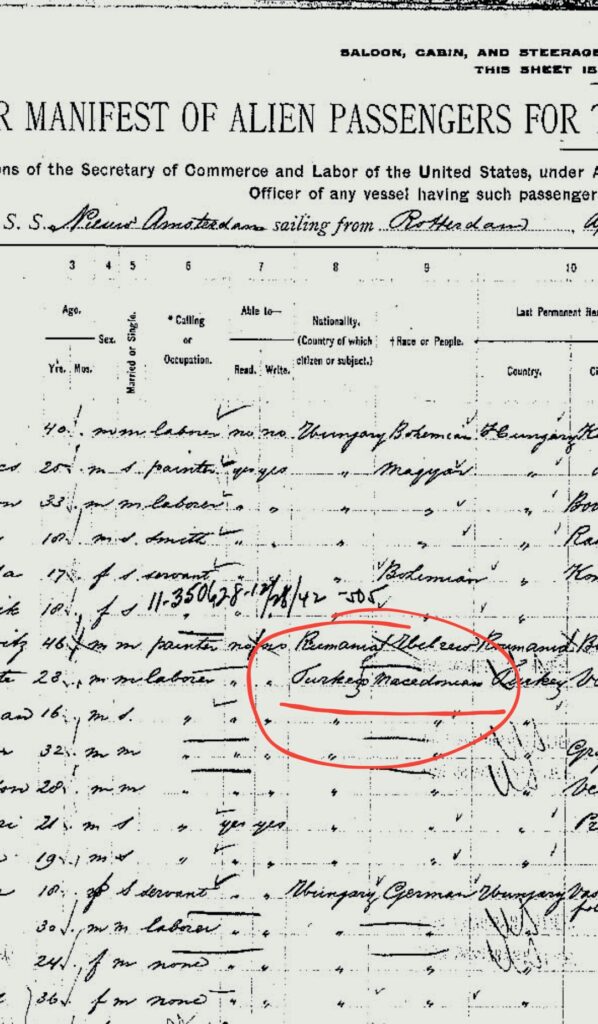 SALOON, CABIN, AND STEERAGE
THIS SHEET IS
R MANIFEST OF ALIEN PASSENGERS FOR T
ns of the Secretary of Commerce and Labor of the United States, under A
Officer of any vessel having such passenger
S. S. Nieuw Amsterdam sailing from Rotterdam
3 4 5 6 7 8 9 10
Age. Sex. Married or Single. *Calling or Occupation. Able to— Nationality. (Country of which citizen or subject.) †Race or People. Last Permanent Re
Yrs. Mos. Read. Write. Country. Ci
40 m m laborer no no Hungary Bohemian Hungary
20 m s painter yes yes " Magyar "
33 m m laborer " " " " "
18 m s smith " " " " "
17 f s servant " " " Bohemian "
11-350628-12/28/42 -505
18 f s
46 m m painter no no Rumania Hebrew Roumania
28 m m laborer " " Turkey Macedonian Turkey
16 m s " " " " "
32 m m " " " " "
28 m m " " " " "
21 m s " yes yes " " "
19 m s " " " " " "
18 f s servant " " Hungary German Hungary
30 m m laborer " " " " "
24 f m none " " " " "
36 f m none " " " " "